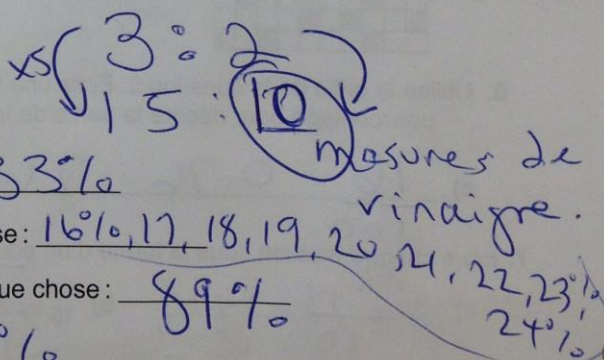 x5 3 : 2
15 : 10
mesures de
vinaigre.
33%
se : 16%, 17, 18, 19, 20, 21, 22, 23%,
24%
ue chose : 89%
%